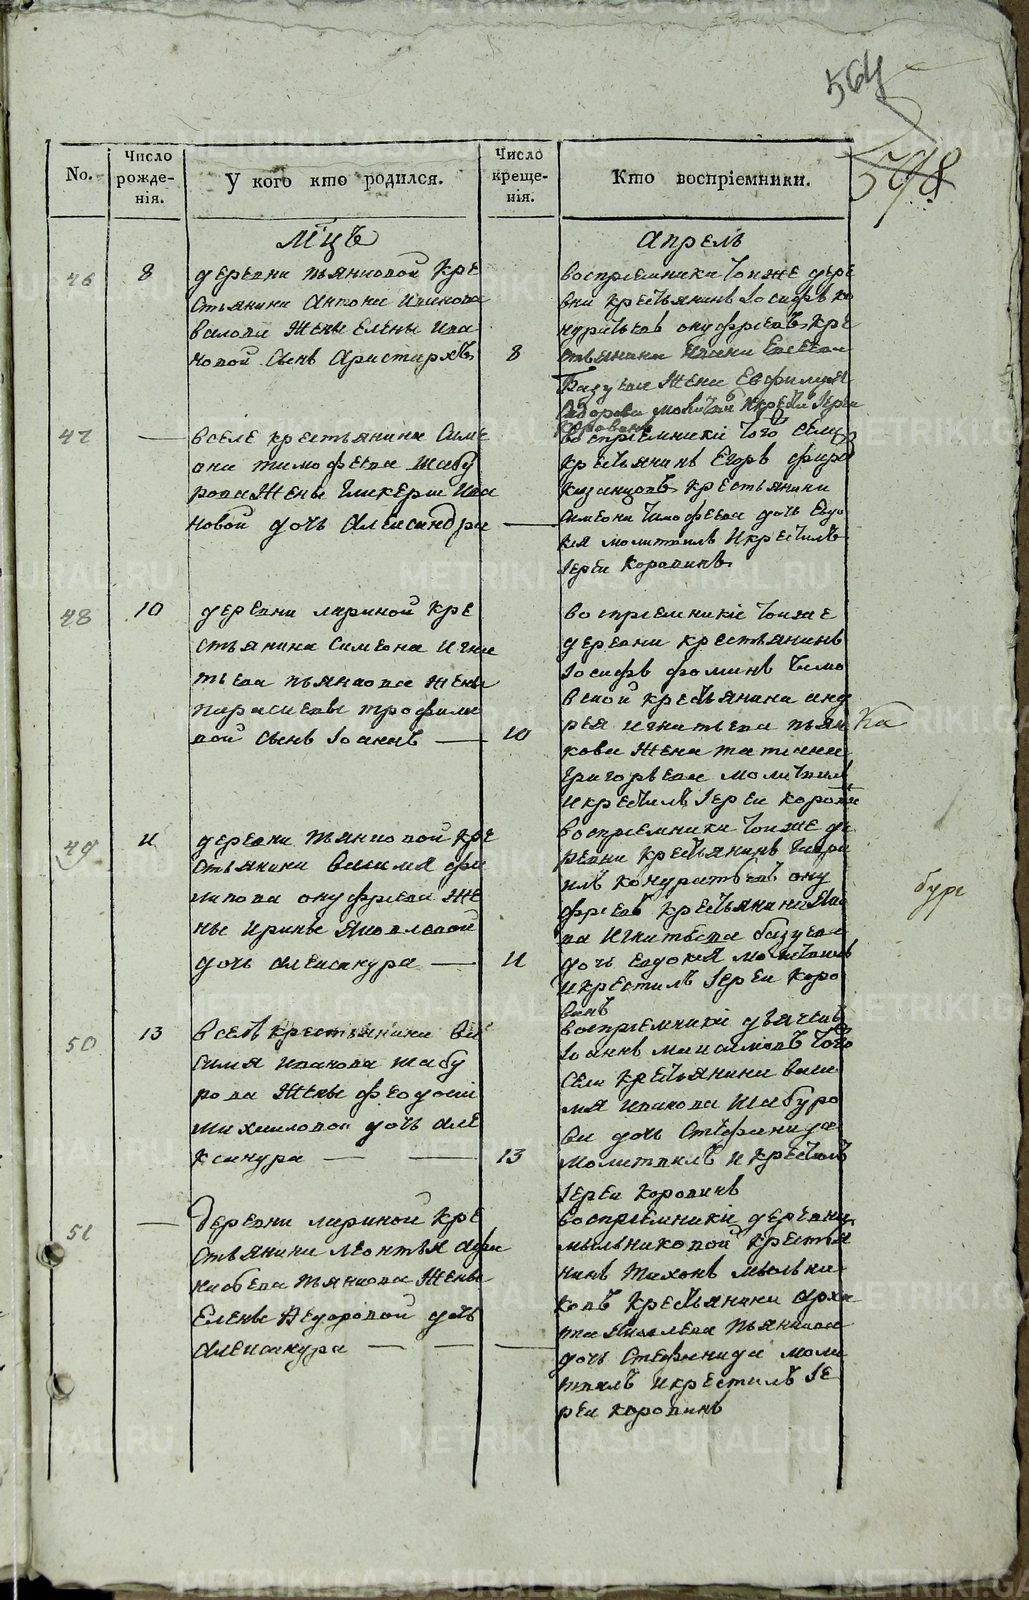 564
598
No.
Число рожде- нія.
У кого кто родился.
Число креще- нія.
Кто воспріемники.
мⷭ҇цъ
апрель
46
8
деревни пьянковой кре
стьянина Антона
жены Елены Ива
новой сынъ Аристархъ
8
воспріемники тоиже дере
вни крестьянинъ Іосифъ ко
ндратьевъ онуфріевъ кре
стьянина Евсеева
жена Евфимия
молитвил и крести Іереи
Коровинъ
47
—
вселе крестьянина Симе
она тимофеева шабу
рова жены гликерии Ива
новой дочь александра —
воспріемники того села
крестьянинъ Егоръ
казанцовъ крестьянина
Симеона тимофеева дочь Евдо
кия молитвилъ и крестилъ
Іереи коровинъ
48
10
деревни лариной кре
стьянина Симеона игна
тьева пьянкова жены
парасковы трофимо
вой сынъ Іоаннъ —
10
воспріемники тоиже
деревни крестьянинъ
Іосифъ фоминъ
крестьянина анд
рея игнатьева пьян
кова жена татиана
григорьева молитвилъ
и крестилъ Іереи коровин
49
11
деревни пьянковой кре
стьянина василия фи
липова онуфриева же
ны ирины Яковлевой
дочь александра —
11
воспріемники тоиже де
ревни крестьянинъ
кондратьевъ ону
фриевъ крестьянина Яко
ва игнатьева базуева
дочь евдокия молитвилъ
и крестилъ Іереи коро
винъ
бург
50
13
вселе крестьянина ва
силия иванова шабу
рова жены феодосии
михаиловой дочь але
ксандра — —
13
воспріемники дьячекъ
Іоаннъ того
села крестьянина васи
лия иванова шабуро
ва дочь Стефанида
молитвилъ и крестилъ
Іереи коровинъ
51
—
деревни лариной кре
стьянина леонтья афа
насьева пьянкова жены
Елены Федоровой дочь
александра — — —
воспріемники деревни
мыльниковой крестья
нинъ тихонъ мыльни
ковъ крестьянина
Яковлева пьянкова
дочь Стефанида моли
твилъ и крестилъ Іе
реи коровинъ
METRIKI.GASO-URAL.RU